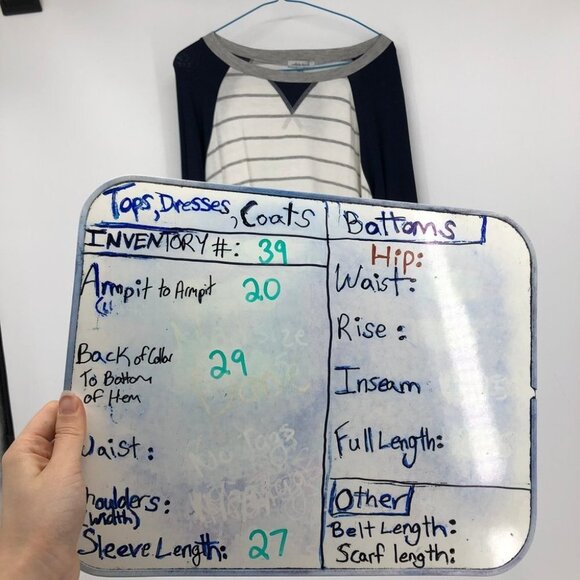 Tops, Dresses, Coats
INVENTORY #: 39
Armpit to Armpit 20
Back of Collar 29
To Bottom
of Hem
Waist:
Shoulders:
(width)
Sleeve Length: 27
Bottoms
Hip:
Waist:
Rise:
Inseam
Full Length:
Other
Belt Length:
Scarf length: